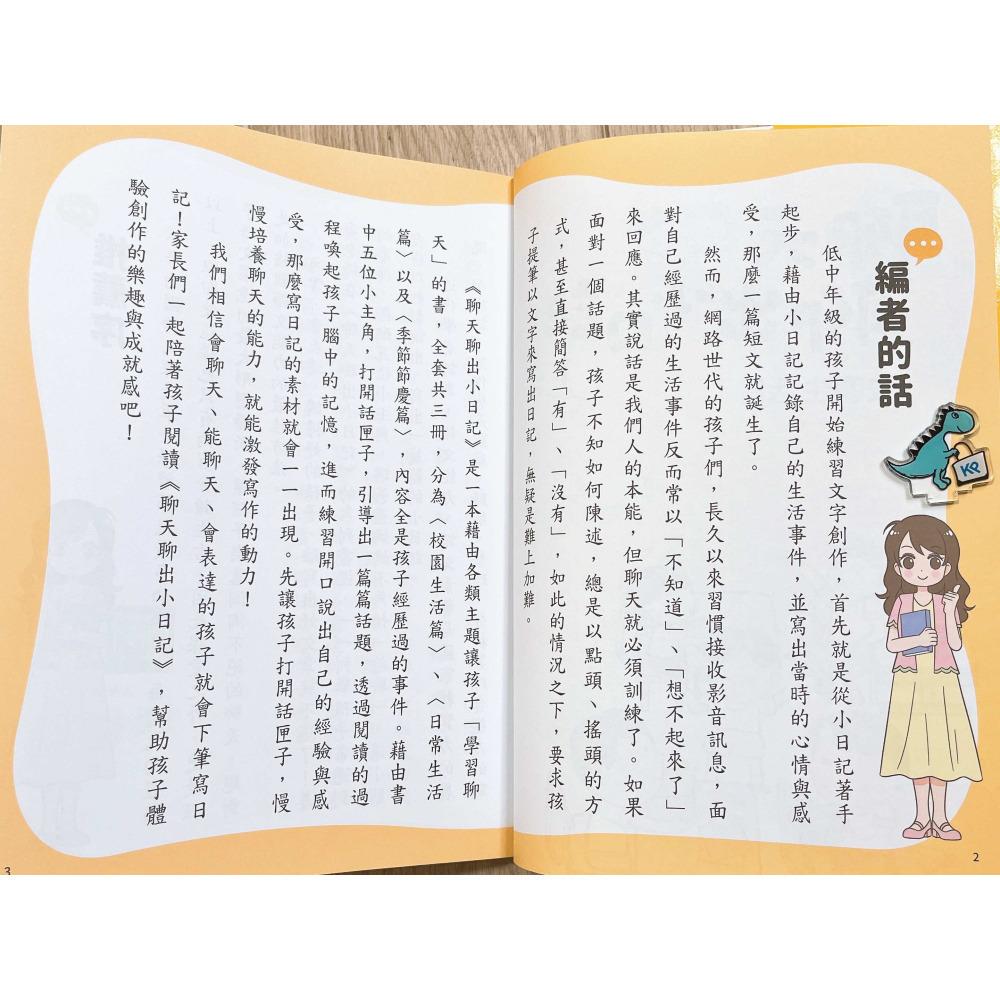 編者的話
低中年級的孩子開始練習文字創作，首先就是從小日記著手
起步，藉由小日記記錄自己的生活事件，並寫出當時的心情與感
受，那麼一篇短文就誕生了。
然而，網路世代的孩子們，長久以來習慣接收影音訊息，面
對自己經歷過的生活事件反而常以「不知道」、「想不起來了」
來回應。其實說話是我們人的本能，但聊天就必須訓練了。如果
面對一個話題，孩子不知如何陳述，總是以點頭、搖頭的方
式，甚至直接簡答「有」、「沒有」，如此的情況之下，要求孩
子提筆以文字來寫出日記，無疑是難上加難。
KP
2
《聊天聊出小日記》是一本藉由各類主題讓孩子「學習聊
天」的書，全套共三冊，分為〈校園生活篇〉、〈日常生活
篇〉以及〈季節節慶篇〉，內容全是孩子經歷過的事件。藉由書
中五位小主角，打開話匣子，引導出一篇篇話題，透過閱讀的過
程喚起孩子腦中的記憶，進而練習開口說出自己的經驗與感
受，那麼寫日記的素材就會一一出現。先讓孩子打開話匣子，慢
慢培養聊天的能力，就能激發寫作的動力！
我們相信會聊天、能聊天、會表達的孩子就會下筆寫日
記！家長們一起陪著孩子閱讀《聊天聊出小日記》，幫助孩子體
驗創作的樂趣與成就感吧！
3